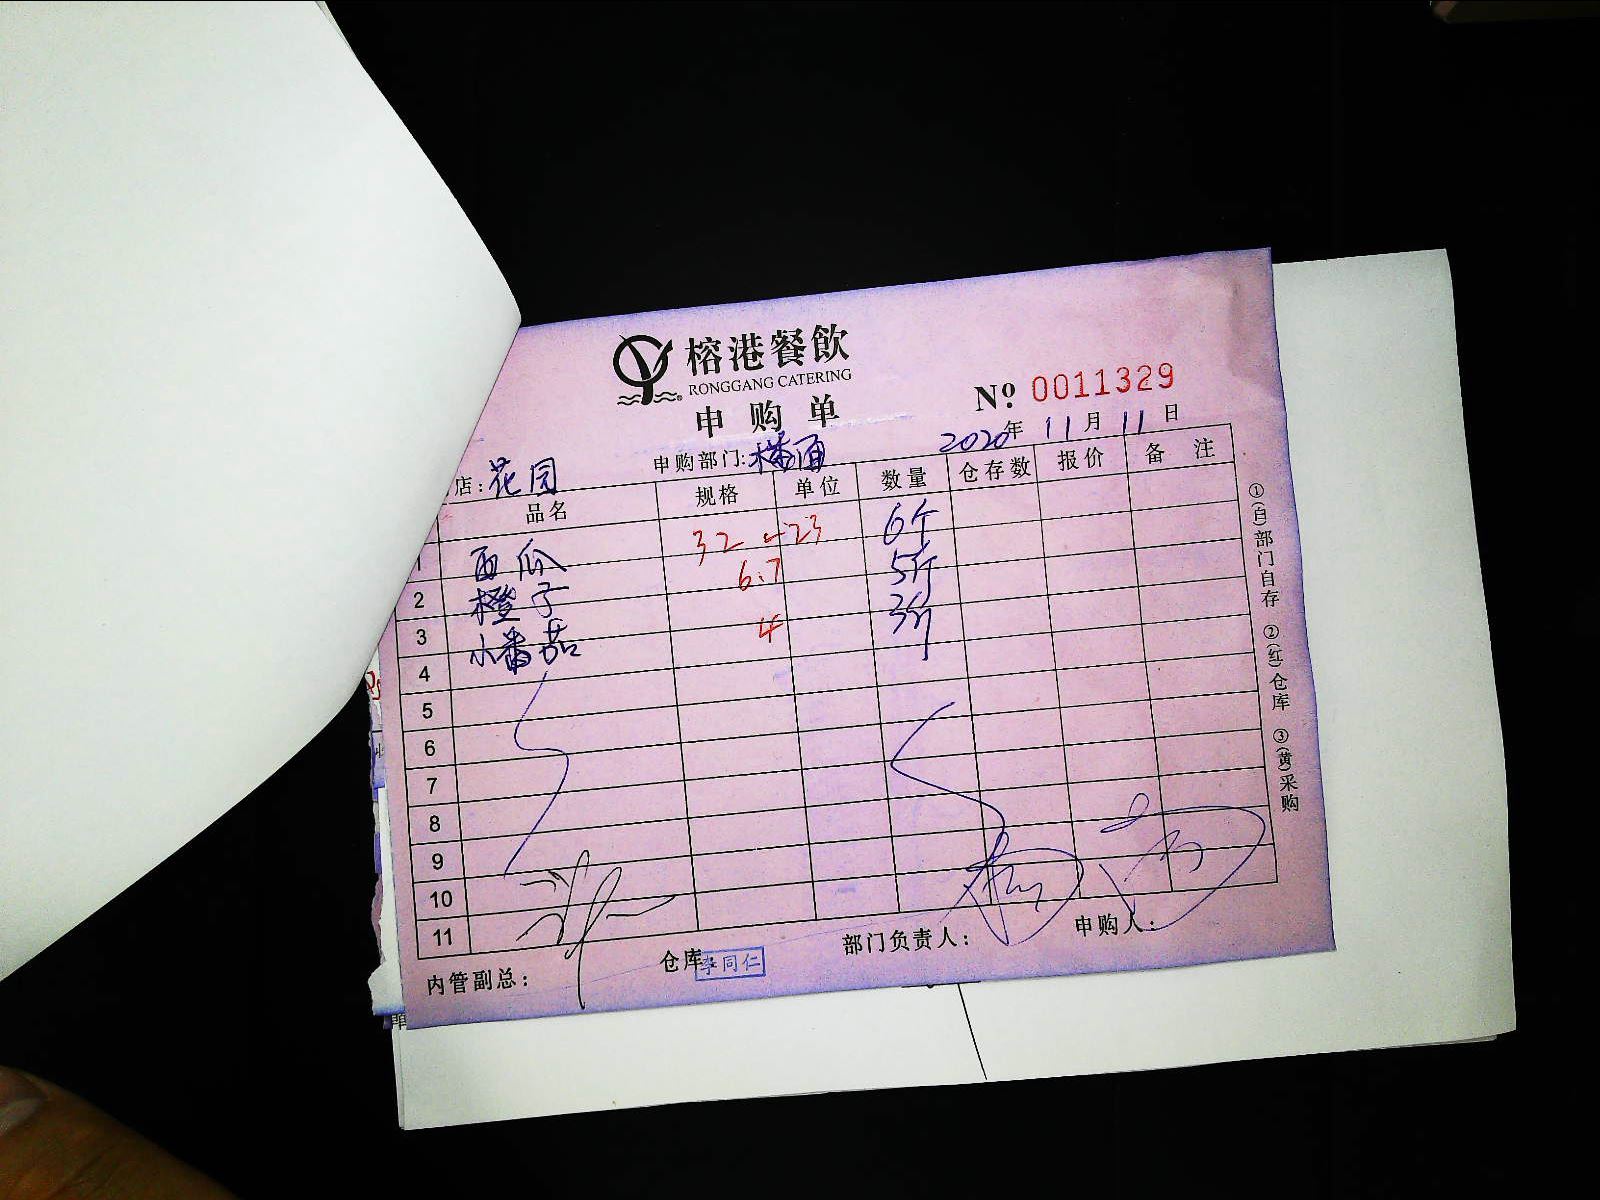 榕港餐飲
RONGGANG CATERING
申购单
№ 0011329
店:花园 申购部门:楼面 2020年11月11日
品名 规格 单位 数量 仓存数 报价 备注
1 西瓜 32 23 6个
2 橙子 6.7 5斤
3 小番茄 4 3斤
4
5
6
7
8
9
10
11
内管副总: 仓库: 李同仁 部门负责人: 申购人:
①(白)部门自存 ②(红)仓库 ③(黄)采购